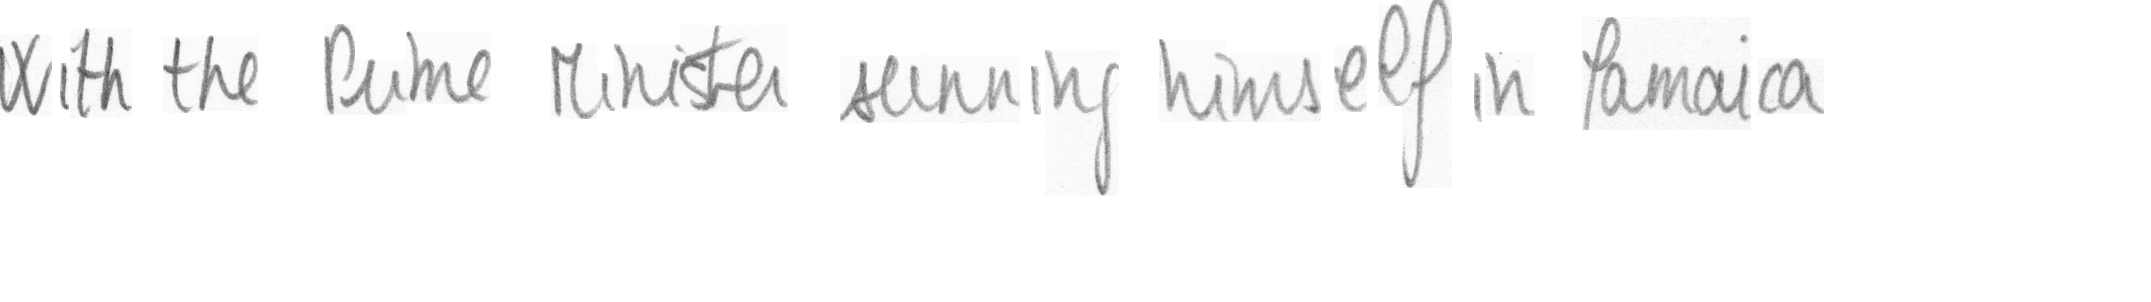 With the Prime Minister sunning himself in Jamaica